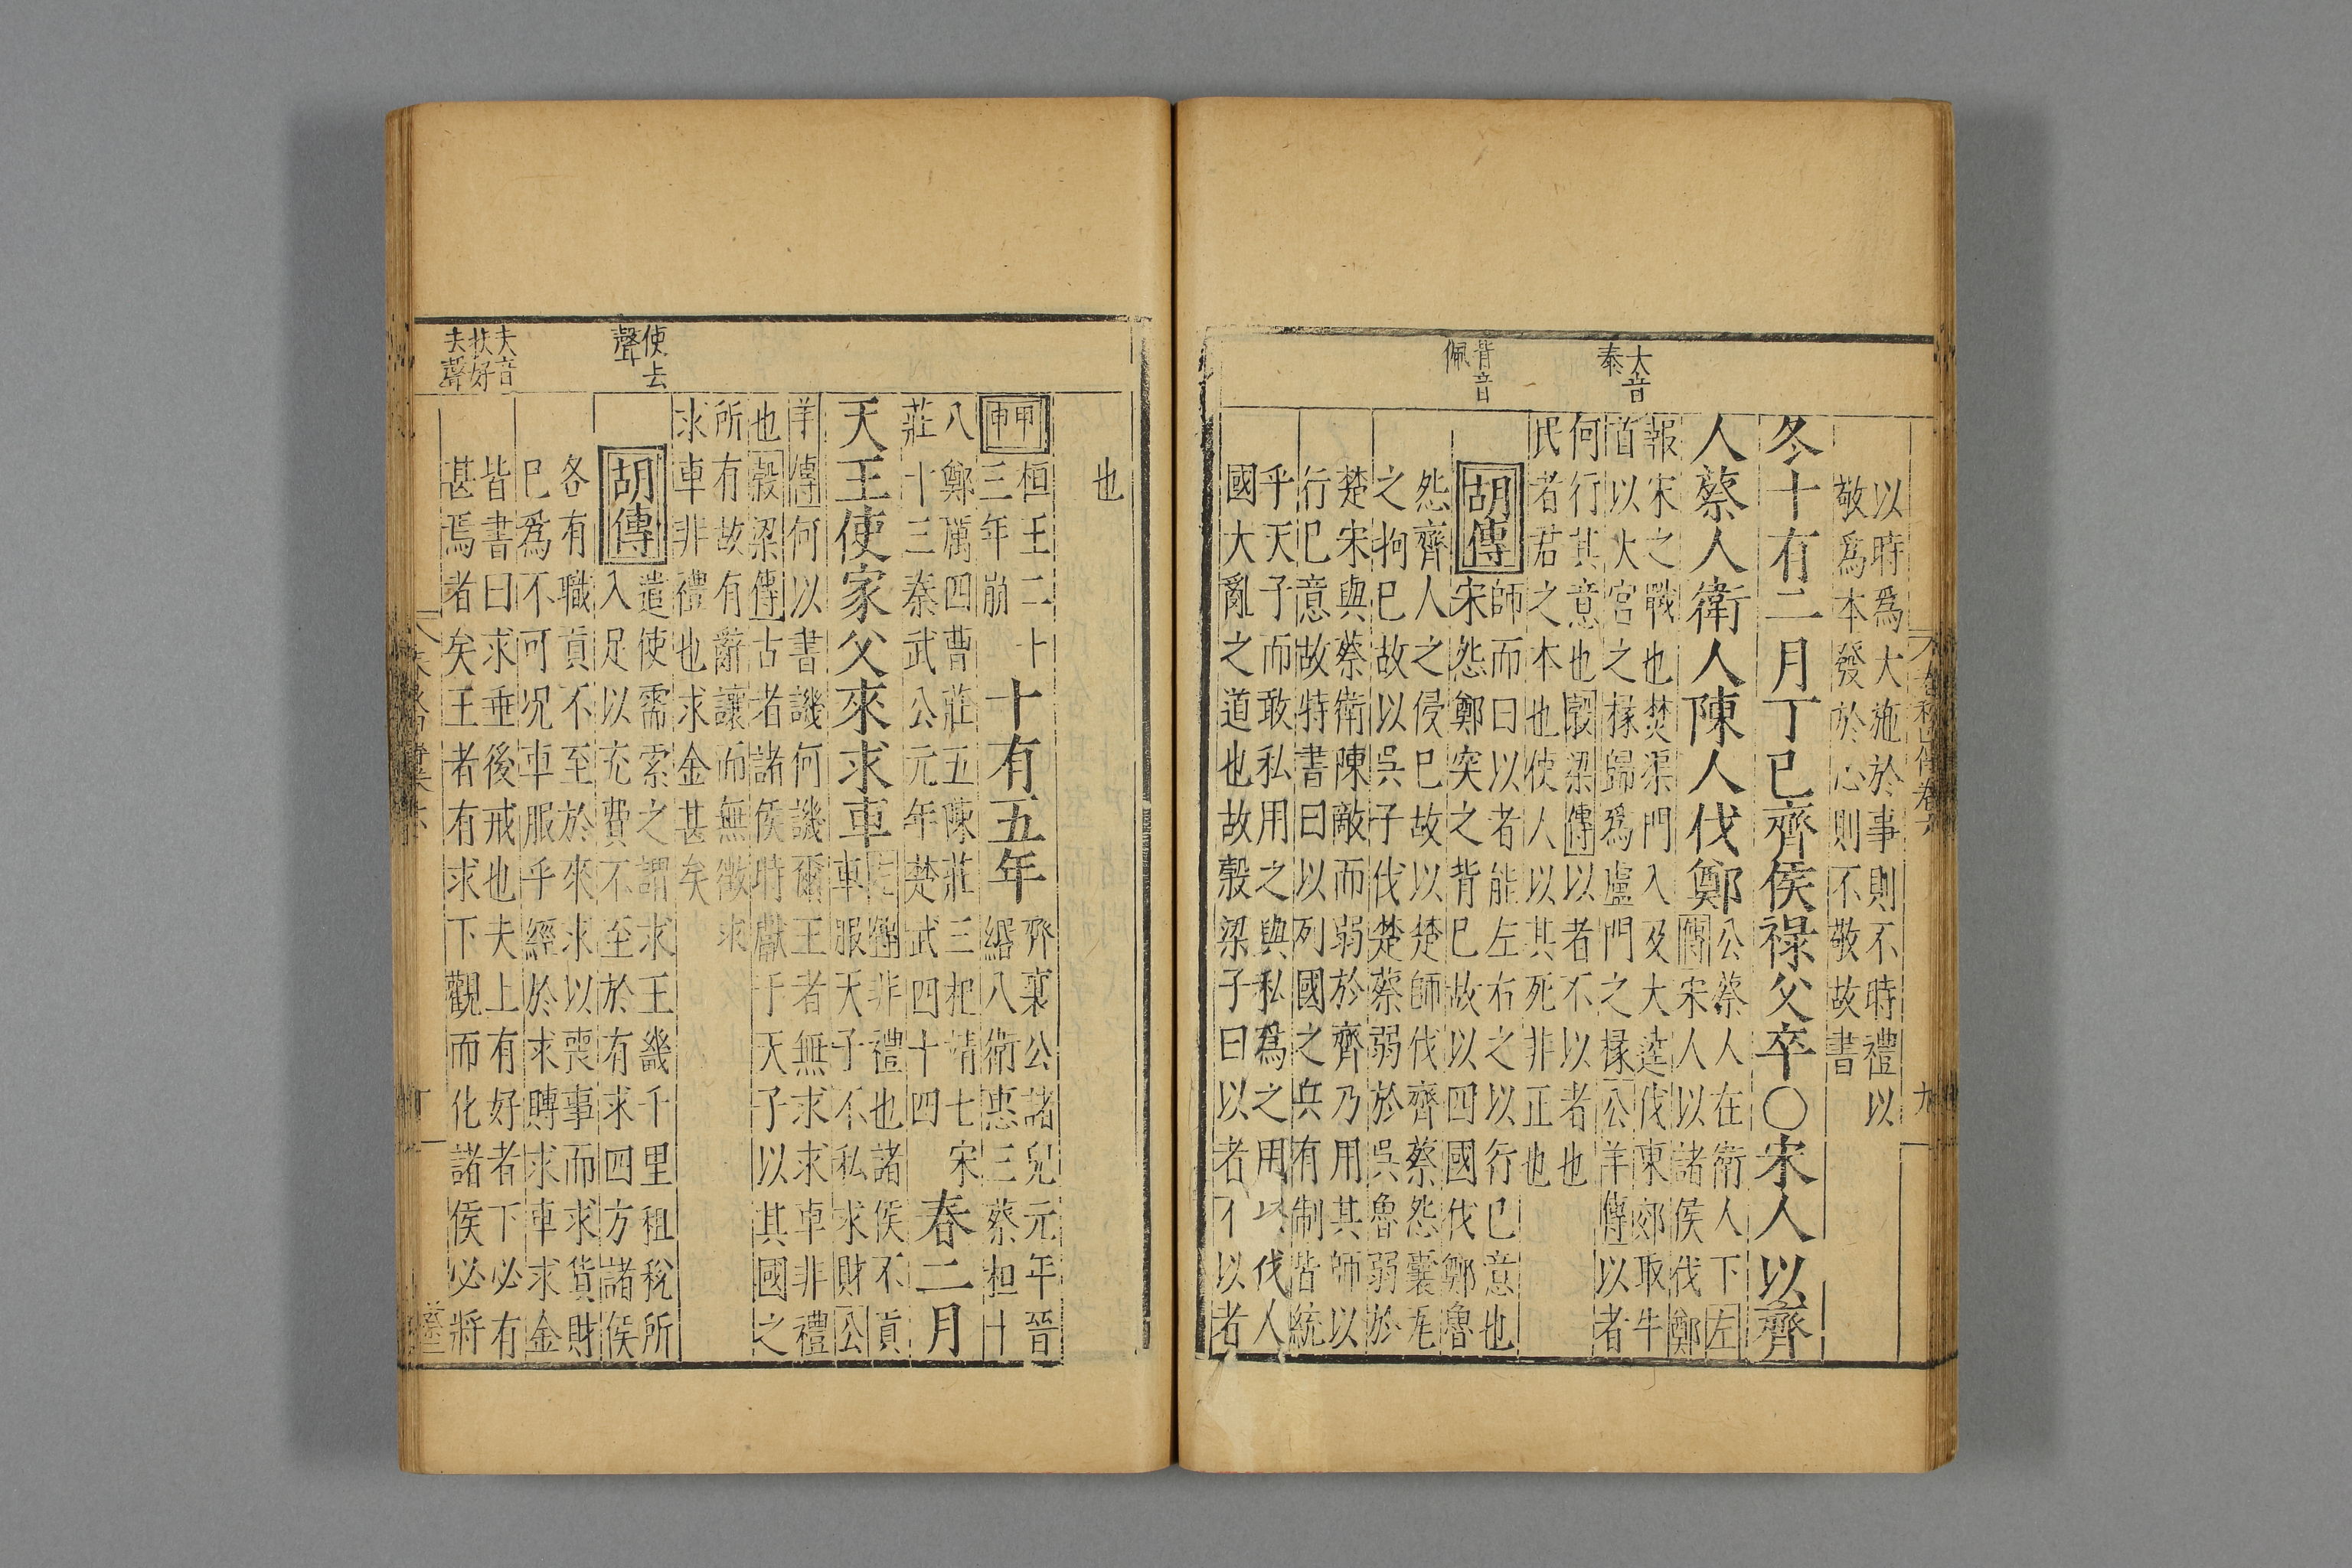 以時爲大施於事則不時禮以
敬爲本發於心則不敬故書
冬十有二月丁巳齊侯祿父卒○宋人以齊
人蔡人衛人陳人伐鄭
公蔡人在衛人下左
傳宋人以諸侯伐鄭
報宋之戰也焚渠門入及大逵伐東郊取牛
首以大宮之椽歸爲盧門之椽公羊傳以者
何行其意也穀梁傳以者不以者也
民者君之本也使人以其死非正也
大音
泰
胡傳
師而曰以者能左右之以行己意也
宋怨鄭突之背己故以四國伐鄭魯
怨齊人之侵己故以楚師伐齊蔡怨囊瓦
之拘己故以吳子伐楚蔡弱於吳魯弱於
楚宋與蔡衛陳敵而弱於齊乃用其師以
行己意故特書曰以列國之兵有制皆統
乎天子而敢私用之與私爲之用以伐人
國大亂之道也故穀梁子曰以者不以者
背音
佩
也
甲申
桓王二十
三年崩
十有五年
齊襄公諸兒元年晉
緡八衛惠三蔡桓十
八鄭厲四曹莊五陳莊三杞靖七宋
莊十三秦武公元年楚武四十四
春二月
天王使家父來求車
左傳非禮也諸侯不貢
車服天子不私求財公
羊傳何以書譏何譏爾王者無求求車非禮
也穀梁傳古者諸侯時獻于天子以其國之
所有故有辭讓而無徵求
求車非禮也求金甚矣
胡傳
遣使需索之謂求王畿千里租稅所
入足以充費不至於有求四方諸侯
各有職貢不至於來求以喪事而求貨財
已爲不可況車服乎經於求賻求車求金
皆書曰求垂後戒也夫上有好者下必有
甚焉者矣王者有求下觀而化諸侯必將
使去
聲
夫音
扶好
去聲